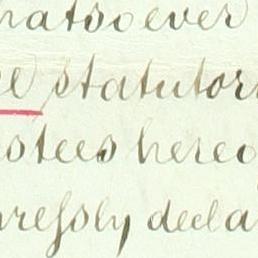 hatsoever
statutor
stees hereo
pressly decla